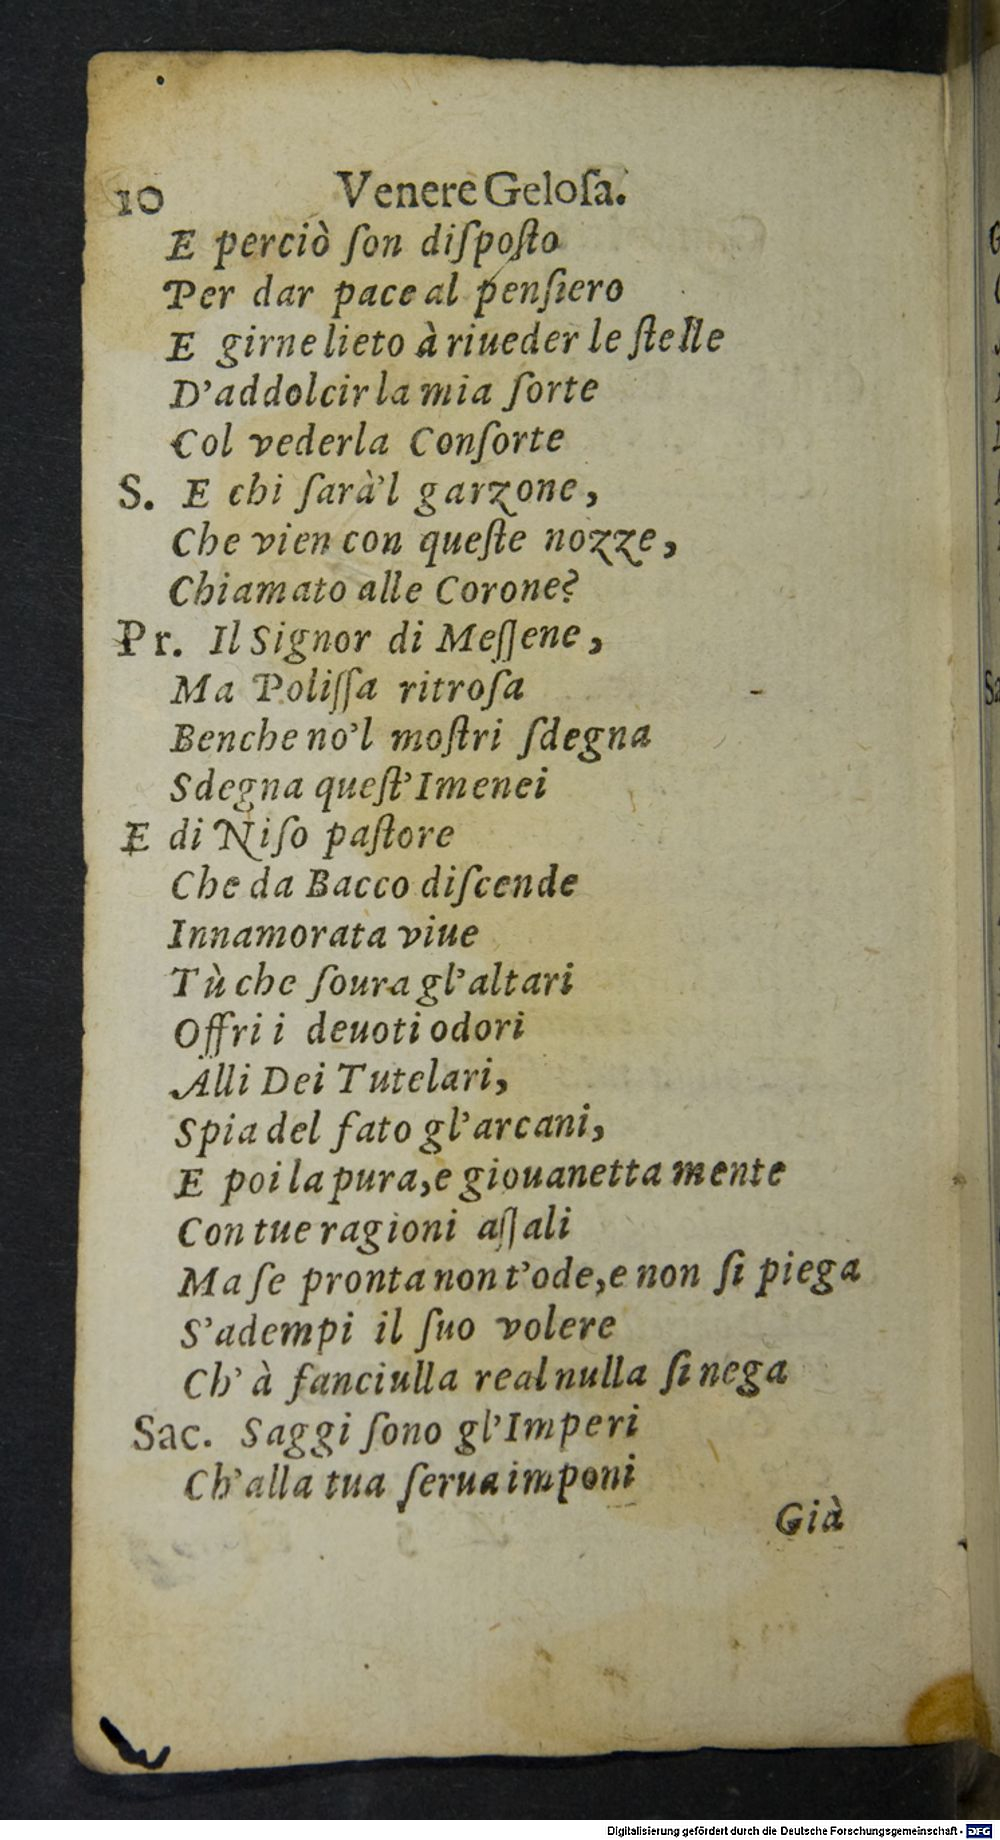 10 Venere Geloſa.
E perciò ſon diſpoſto
Per dar pace al penſiero
E girne lieto à riueder le ſtelle
D'addolcir la mia ſorte
Col vederla Conſorte
S. E chi ſarà'l garzone,
Che vien con queſte nozze,
Chiamato alle Corone?
Pr. Il Signor di Meſſene,
Ma Poliſſa ritroſa
Benche no'l moſtri ſdegna
Sdegna queſt'Imenei
E di Niſo paſtore
Che da Bacco diſcende
Innamorata viue
Tù che ſoura gl'altari
Offri i deuoti odori
Alli Dei Tutelari,
Spia del fato gl'arcani,
E poi la pura, e giouanetta mente
Con tue ragioni aſſali
Ma ſe pronta non t'ode, e non ſi piega
S'adempi il ſuo volere
Ch' à fanciulla real nulla ſi nega
Sac. Saggi ſono gl'Imperi
Ch'alla tua ſerua imponi
Già
Sa
Digitalisierung gefördert durch die Deutsche Forschungsgemeinschaft - DFG